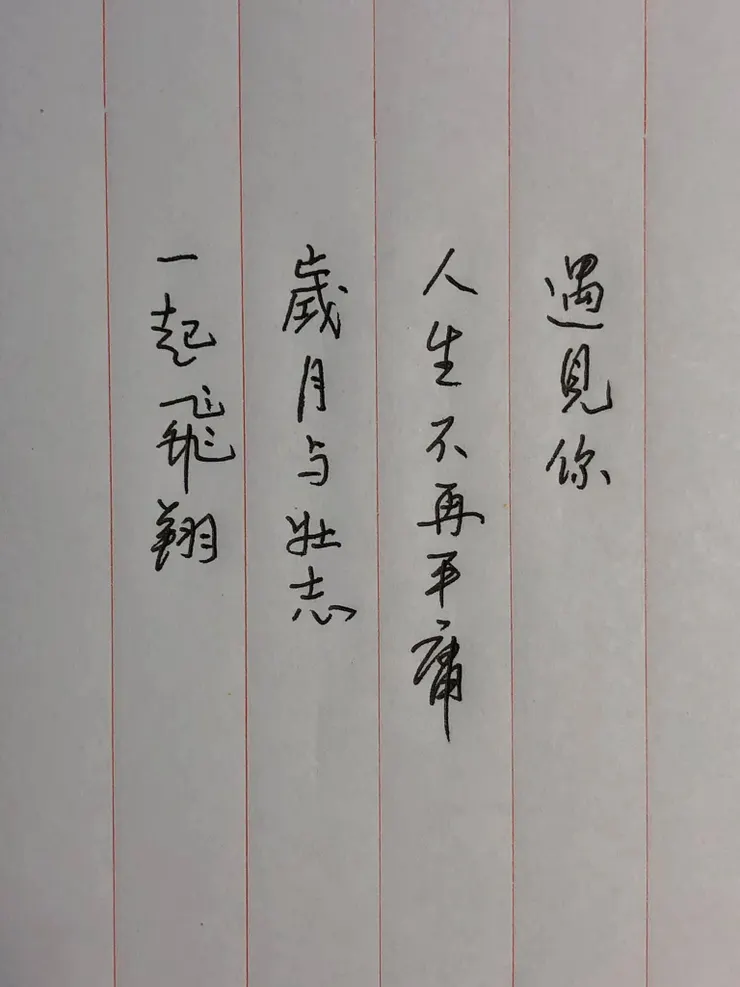 遇見你
人生不再平庸
歲月与壯志
一起飛翔